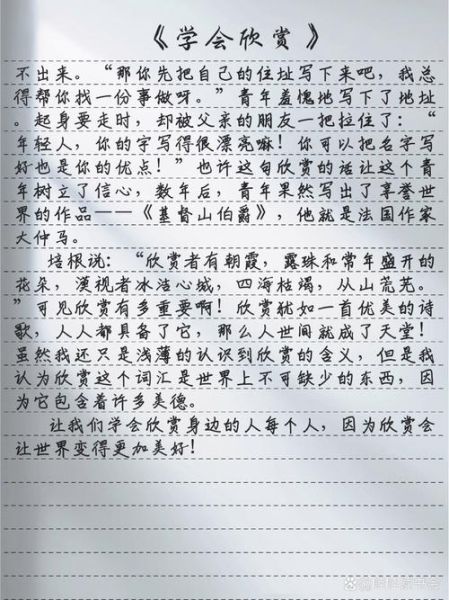 《学会欣赏》
不出来。“那你先把自己的住址写下来吧，我总
得帮你找一份事做呀。”青年羞愧地写下了地址
。起身要走时，却被父亲的朋友一把拉住了：“
年轻人，你的字写得很漂亮嘛！你可以把名字写
好也是你的优点！”也许这句欣赏的话让这个青
年树立了信心，数年后，青年果然写出了享誉世
界的作品——《基督山伯爵》，他就是法国作家
大仲马。
培根说：“欣赏者有朝霞，露珠和常年盛开的
花朵，漠视者冰洁心城，四海枯竭，从山荒芜。
”可见欣赏有多重要啊！欣赏犹如一首优美的诗
歌，人人都具备了它，那么人世间就成了天堂！
虽然我还只是浅薄的认识到欣赏的含义，但是我
认为欣赏这个词汇是世界上不可缺少的东西，因
为它包含着许多美德。
让我们学会欣赏身边的人每个人，因为欣赏会
让世界变得更加美好！